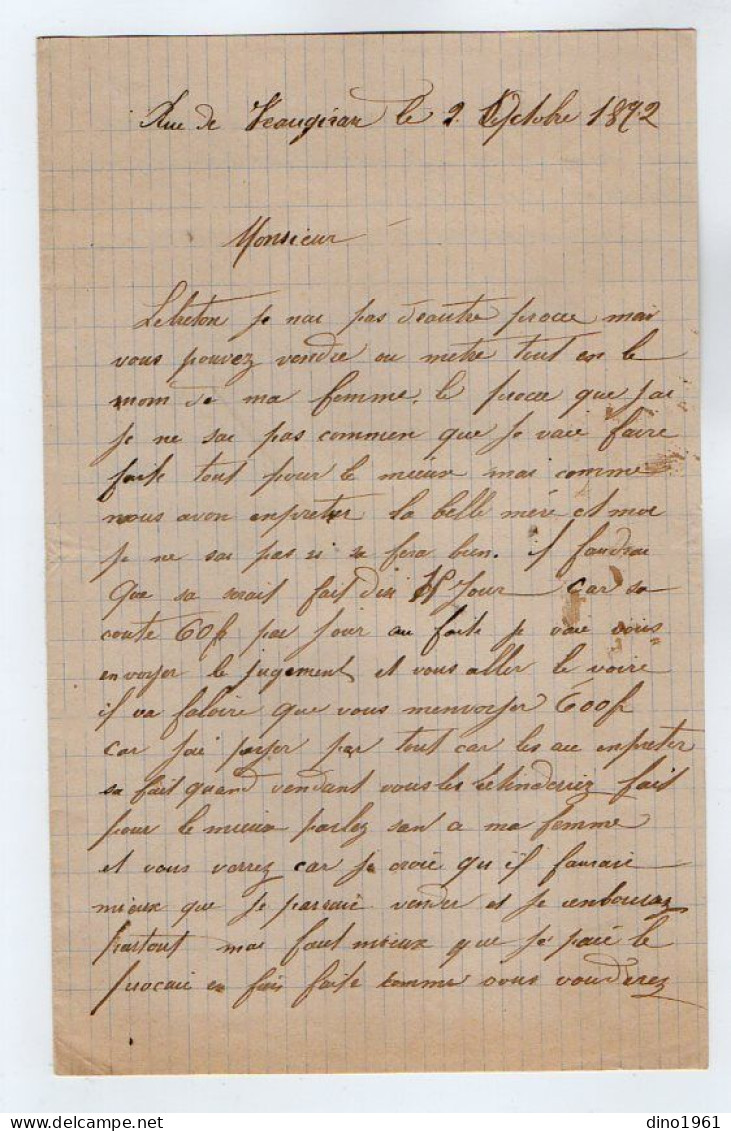 Rue de Veaugirar le 2 Octobre 1892
Monsieur
Lebreton je nai pas deautre proce mai
vous pouvez vendre ou metre tout en le
nom de ma femme. le proce que jai
je ne sai pas commen que je vaie faire
faite tout pour le mieux mai comme
nous avon enpreter la belle mére et moi
je ne sai pas si sa fera bien. il faudrai
que sa serait fait dici 15 jour car sa
coute 60f par jour au faite je vaie vous
envoyer le jugement et vous aller le voire
il va faloire que vous menvoyer 600f
car jai payer par tout car les ai enpreter
sa fait quand vendant vous les fait
pour le mieux parlez san a ma femme
et vous verrez car je croie qu il faurai
mieux que je paraie vendre et je renbourse
partout mai faut mieux que je paie le
procaie en fin faite comme vous vouderez
dino1961